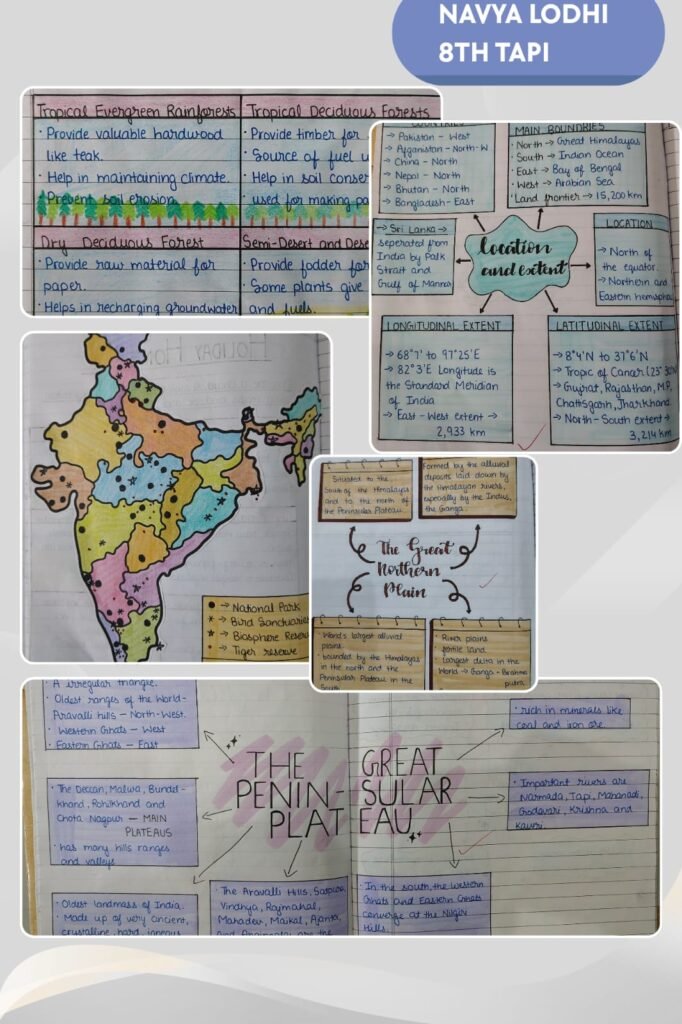 NAVYA LODHI
8TH TAPI
Tropical Evergreen Rainforests
• Provide valuable hardwood
like teak.
• Help in maintaining climate.
• Prevent soil erosion
Tropical Deciduous Forests
• Provide timber for
• Source of fuel
• Help in soil
used for making
Dry Deciduous Forest
• Provide raw material for
paper.
• Helps in recharging groundwater
Semi-Desert and
• Provide fodder for
• Some plants give
and fuels.
COUNTRIES
→ Pakistan - West
→ Afganistan - North-W
→ China - North
→ Nepal - North
→ Bhutan - North
→ Bangladesh - East
MAIN BOUNDRIES
• North → Great Himalayas
• South → Indian Ocean
• East → Bay of Bengal
• West → Arabian Sea
• Land frontier → 15,200 km
→ Sri Lanka →
seperated from
India by Palk
Strait and
Gulf of Mannar
Location
and extent
LOCATION
→ North of
the equator.
→ Northern and
Eastern
LONGITUDINAL EXTENT
→ 68°7' to 97°25'E
→ 82°3'E Longitude is
the Standard Meridian
of India
→ East-West extent →
2,933 km
LATITUDINAL EXTENT
→ 8°4'N to 37°6'N
→ Tropic of Cancer
→ Gujrat, Rajasthan, M.P.
Chattisgarh, Jharkhand.
→ North-South extent →
3,214 km
HOLIDAY
• → National Park
* → Bird Sanctuaries
→ Biosphere
• → Tiger reserve
Situated to the
South of the Himalayas
and to the north of
the Peninsular Plateau.
Formed by the alluvial
deposits laid down by
the Himalayan rivers,
especially by the Indus,
the Ganga.
The Great
Northern
Plain
• World's largest alluvial
plains.
• bounded by the Himalayas
in the north and the
Peninsular Plateau in the
South
• River plains
• fertile land.
• Largest delta in the
World → Ganga - Brahma
putra
• A irregular triangle.
• Oldest ranges of the World-
Aravalli hills - North-West.
• Western Ghats - West
• Eastern Ghats - East
• rich in minerals like
coal and iron ore.
THE GREAT
PENIN-SULAR
PLATEAU
• The Deccan, Malwa, Bundel-
khand, Rohilkhand and
Chota Nagpur - MAIN
PLATEAUS
• has many hills ranges
and valleys
• Important rivers are
Narmada, Tapi, Mahanadi,
Godavari, Krishna and
Kaveri
• Oldest landmass of India.
• Made up of very ancient,
crystalline, hard, igneous
• The Aravalli Hills, Satpura,
Vindhya, Rajmahal,
Mahadev, Maikal, Ajanta,
and are the
• In the south, the Western
Ghats and Eastern Ghats
converge at the Nilgiri
Hills.